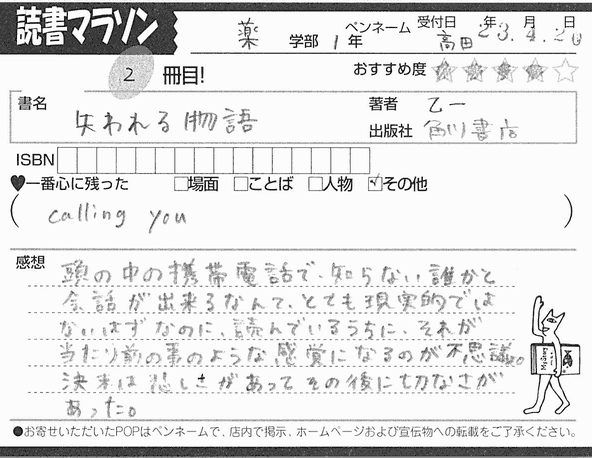 読書マラソン
薬 学部 1年 ペンネーム 高田 受付日 23年 4月 2 日
2 冊目! おすすめ度 ★★★★☆
書名 失われる物語 著者 乙一
出版社 角川書店
ISBN
♥一番心に残った □場面 □ことば □人物 ☑その他
( calling you )
感想 頭の中の携帯電話で、知らない誰かと
会話が出来るなんて、とても現実的では
ないはずなのに、読んでいるうちに、それが
当たり前の事のような感覚になるのが不思議。
決末は悲しさがあってその後に切なさが
あった。
Mystery
●お寄せいただいたPOPはペンネームで、店内で掲示、ホームページおよび宣伝物への転載をご了承ください。